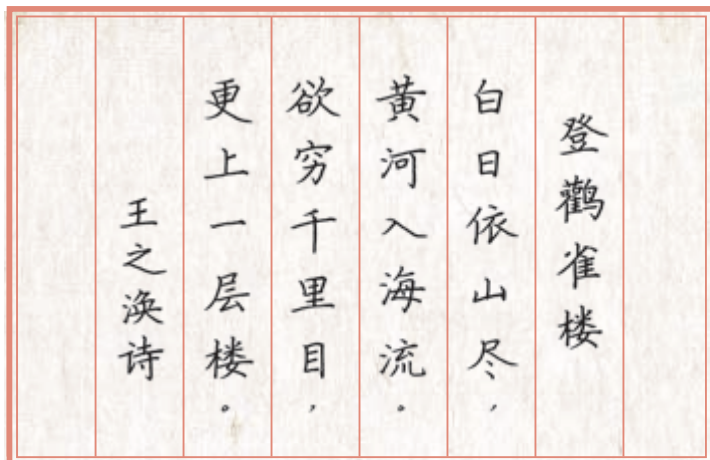 登鹳雀楼
白日依山尽，
黄河入海流。
欲穷千里目，
更上一层楼。
王之涣诗